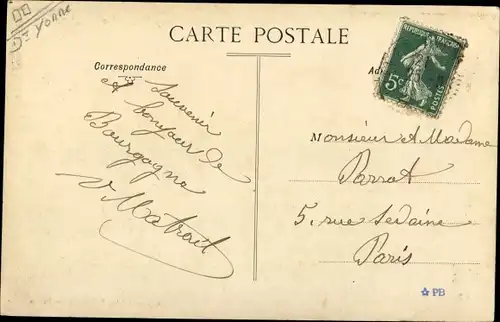 Dt Yonne
CARTE POSTALE
Correspondance
REPUBLIQUE FRANÇAISE
5c
POSTES
Souvenir
& bonjour de
Bourgogne
Monsieur & Madame
Parrat
5, rue Sedaine
Paris
PB